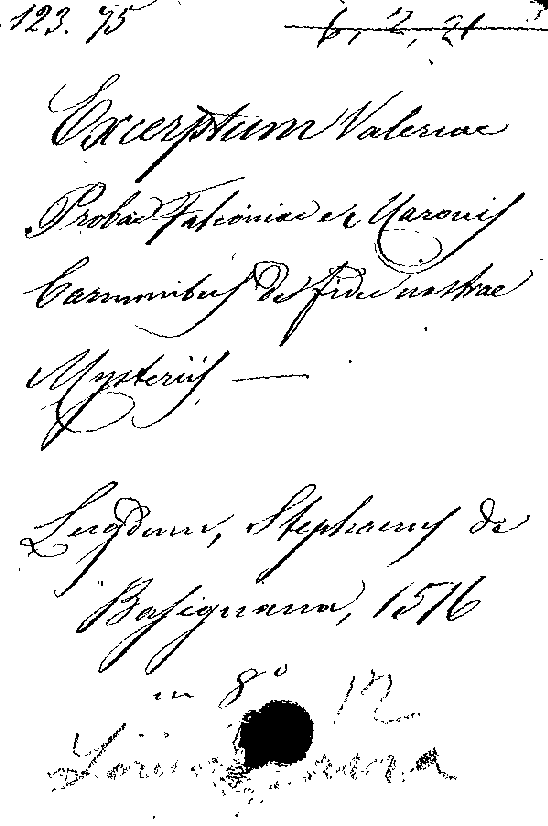 123. 75 6, 2, 21
Excerptum Valeriae
Probae Falconiae ex Maronis
Carminibus de fidei nostrae
Mysteriis —
Lugduni, Stephanus de
Basignana, 1516
in 8° 12